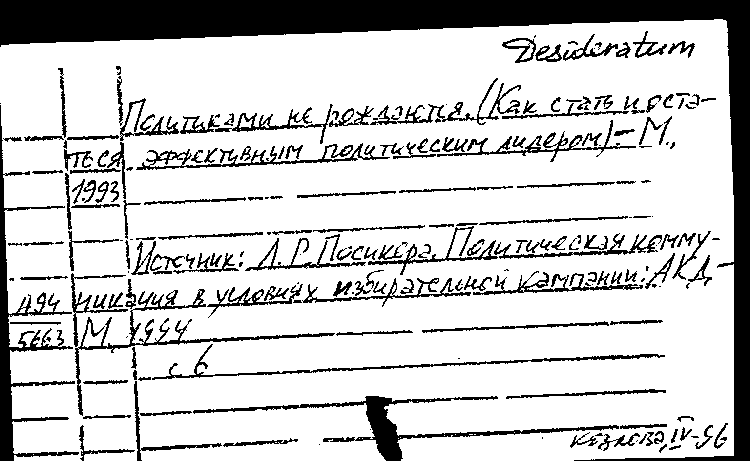 Desideratum
Политиками не рождаются. (Как стать и оста-
ться эффективным политическим лидером) – М.,
1993
Источник: Л.Р. Посикера. Политическая комму-
А94 никация в условиях избирательной кампании: АКД, –
5663 М, 1994
с 6
Козлова, IV-96